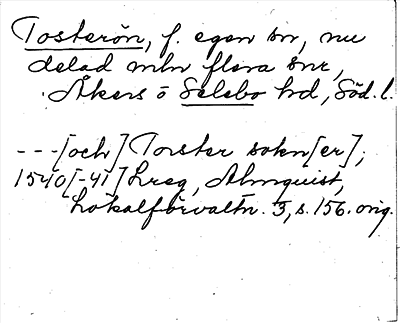 Tosterön, f. egen sn, nu
delad mln flera snr,
Åkers o Selebo hd, Söd. l.
---[och] Torster sokn[er];
1540[-41] hreg, Almquist,
Lokalförvaltn. 3, s. 156. orig.